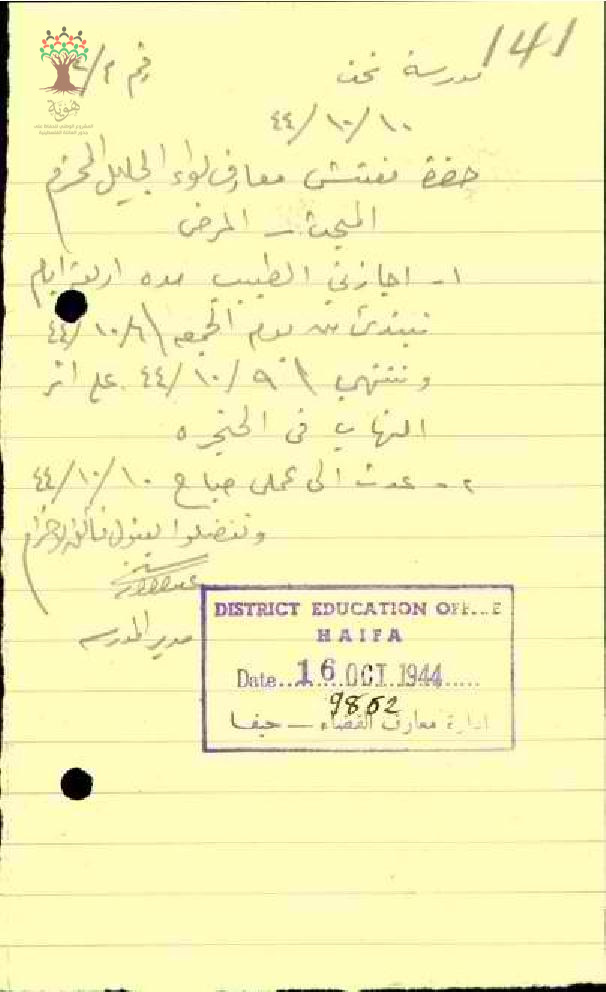 141
مدرسة نحف
رقم ٢/٢
٤٤/١٠/١٠
حضرة مفتش معارف لواء الجليل المحترم
المبحث ـ المرض
١ـ اجازني الطبيب مده اربعة ايام
تبتدئ من يوم الجمعه ٤٤/١٠/٦
وتنتهي ٤٤/١٠/٩ على اثر
التهاب في الحنجره
٢ـ عدت الى عملي صباح ٤٤/١٠/١٠
وتفضلوا بقبول فائق الاحترام
مدير المدرسه
DISTRICT EDUCATION OFF...E
HAIFA
Date...16 OCT 1944.....
9852
ادارة معارف القضاء ـ حيفا
هوية